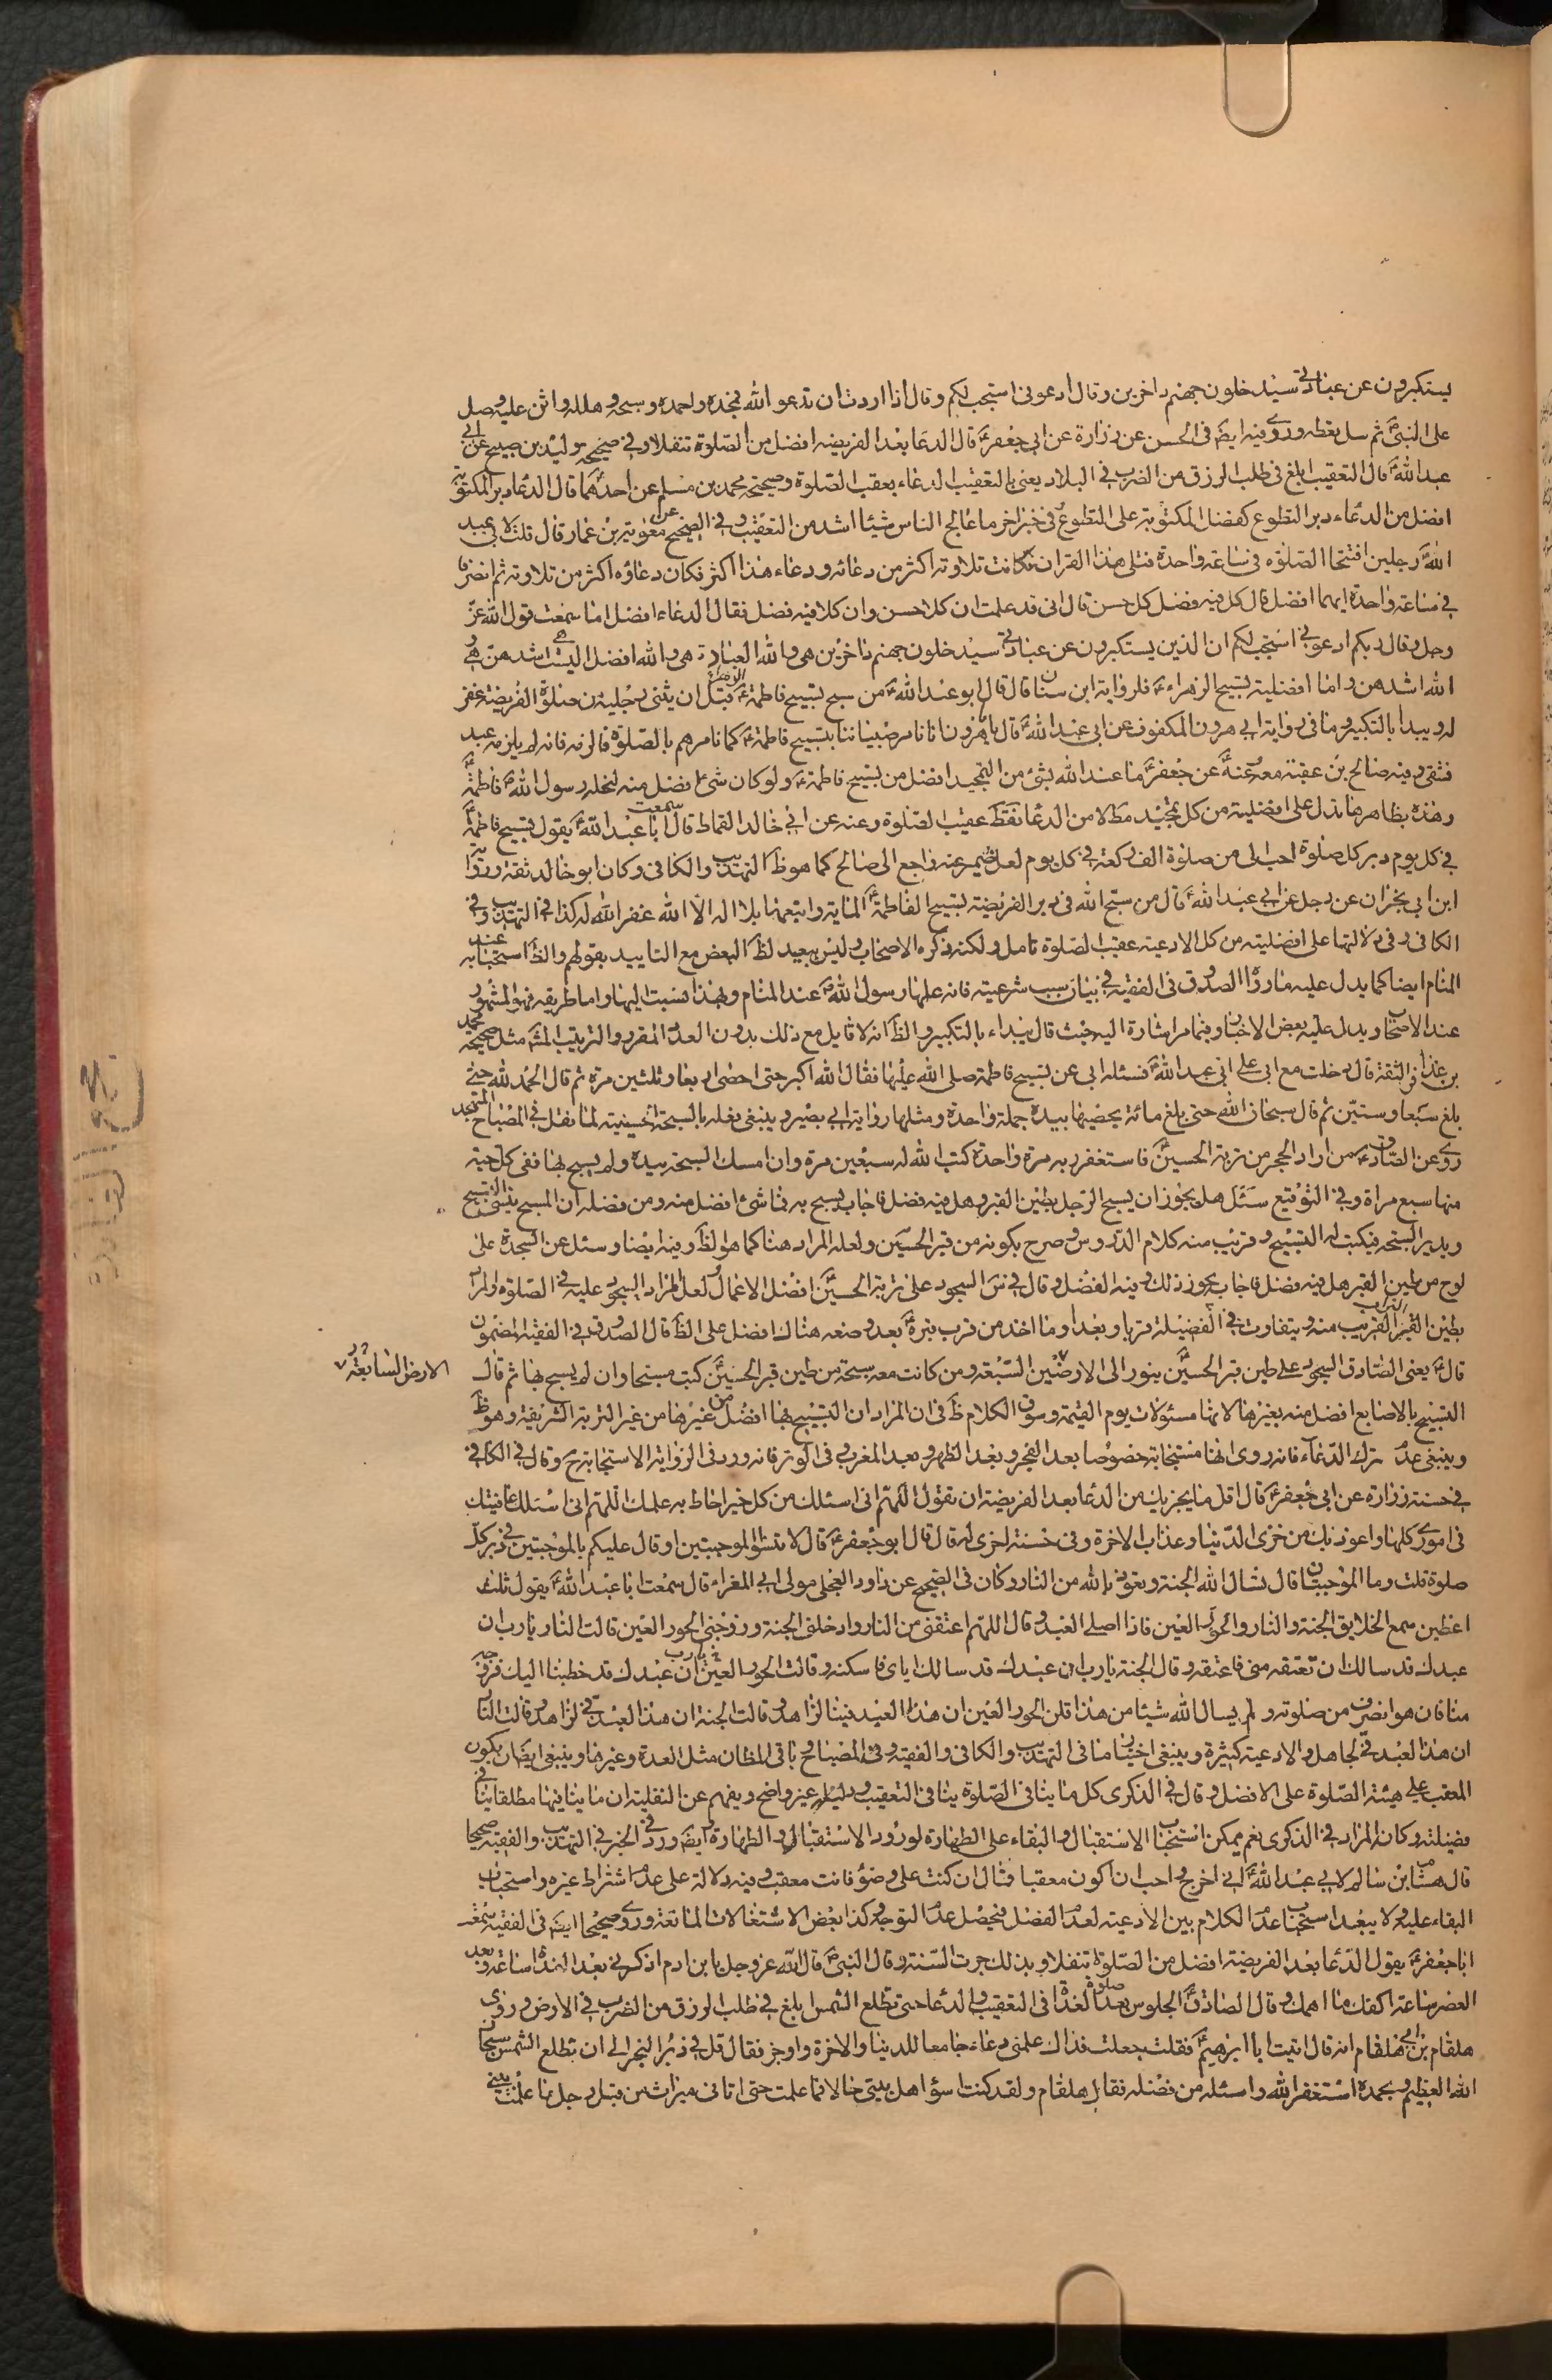 يستكبرون عن عبادتي سيدخلون جهنم داخرين وقال ادعوني استجب لكم وقال اذا اردت ان تدعو الله فمجده واحمده وسبحه وهلله واثن عليه وصل
على النبيؐ ثم سل يعطه وروى فيه ايضا في الحسن عن زرارة عن ابي جعفرؑ قال الدعا بعد الفريضه افضل من الصلوة تنفلا وفي صحيحه وليد بن صبيح عن ابي
عبد اللهؑ قال التعقيب ابلغ في طلب الرزق من الضرب في البلاد يعني بالتعقيب الدعاء بعقب الصلوة وصحيحه محمد بن مسلم عن احدهماؑ قال الدعاء دبر المكتوبة
افضل من الدعاء دبر التطوع كفضل المكتوبة على التطوع وفي خبر اخر ما عالج الناس شيئا اشد من التعقيب وفي الصحيح عن معوية بن عمار قال قلت لابي عبد
اللهؑ رجلين افتتحا الصلوة في ساعة واحدة فتلى هذا القران فكانت تلاوته اكثر من دعائه ودعاء هذا اكثر فكان دعاؤه اكثر من تلاوته ثم انصرفا
في ساعة واحدة ايهما افضل قال كل فيه فضل كل حسن قال اني قد علمت ان كلا حسن وان كلا فيه فضل فقال الدعاء افضل اما سمعت قول الله عز
وجل وقال ربكم ادعوني استجب لكم ان الذين يستكبرون عن عبادتي سيدخلون جهنم داخرين هي والله العبادة هي والله افضل اليست هي اشدهن هي و
الله اشدهن واما افضلية تسبيح الزهراءؑ فلرواية ابن سنان قال قال ابو عبد اللهؑ من سبح تسبيح فاطمة الزهراءؑ قبل ان يثني رجليه من صلوة الفريضة غفر
له ويبدا بالتكبير وما في رواية ابي هرون المكفوف عن ابي عبد اللهؑ قال يا با هرون انا نامر صبياننا بتسبيح فاطمةؑ كما نامرهم بالصلوة فالزمه فانه لم يلزمه عبد
فشقي وفيه صالح بن عقبة معه عنه عن جعفرؑ ما عبد الله بشئ من التمجيد افضل من تسبيح فاطمةؑ ولو كان شئ افضل منه لنحله رسول اللهؐ فاطمةؑ
وهذه بظاهرها تدل على افضليته من كل تمجيد مطلا من الدعا فقط عقيب الصلوة وعنه عن ابي خالد القماط قال سمعت ابا عبد اللهؑ يقول تسبيح فاطمةؑ
في كل يوم دبر كل صلوة احب الي من صلوة الف ركعة في كل يوم لعل ضمير عنه راجع الى صالح كما هو ظ التهذيب والكافي وكان ابو خالد ثقة ورواية
ابن ابي نجران عن رجل عن ابي عبد اللهؑ قال من سبح الله في دبر الفريضة تسبيح الفاطمةؑ المائة واتبعها بلا اله الا الله غفر الله له كذا في التهذيب وفي
الكافي وفي دلالتها على افضليته من كل الادعية عقيب الصلوة تامل ولكنه ذكره الاصحاب وليس ببعيد لظ البعض مع التاييد بقولهم والظ استحبابه عند
المنام ايضا كما يدل عليه ما رواه الصدوق في الفقيه في بيان سبب شرعيته فانه علمها رسول اللهؐ عند المنام وبهذا نسبت اليها واما طريقه فهو المشهور
عند الاصحاب ويدل عليه بعض الاخبار وفيما مر اشارة اليه حيث قال يبداء بالتكبير والظ انه لا قايل مع ذلك بدون العدد المقرر والترتيب المشه مثل صحيحه محمد
بن عذافر الثقة قال دخلت مع ابي على ابي عبد اللهؑ فسئله ابي عن تسبيح فاطمة صلى الله عليها فقال الله اكبر حتى احصى اربعا وثلثين مرة ثم قال الحمد لله حتى
بلغ سبعا وستين ثم قال سبحان الله حتى بلغ مائة يحصيها بيده جملة واحدة ومثلها رواية ابي بصير وينبغي فعله بالسبحة الحسينية لما نقل في المصباح المتهجد
روى عن الصادقؑ من اراد الحجر من تربة الحسينؑ فاستغفر به مرة واحدة كتب الله له سبعين مرة وان امسك السبحة بيده ولم يسبح بها ففي كل حبة
منها سبع مراة وفي التوقيع سئل هل يجوز ان يسبح الرجل بطين القبر وهل فيه فضل فاجاب يسبح به فما شئ افضل منه ومن فضله ان المسبح ينسى التسبيح
ويدير السبحه فيكتب له التسبيح وقريب منه كلام الدروس وصرح بكونه من قبر الحسين ولعله المراد هنا كما هو الظ وفيه ايضا وسئل عن السجدة على
لوح من طين القبر هل فيه فضل فاجاب يجوز ذلك وفيه الفضل وقال في س السجود على تربة الحسينؑ افضل الاعمال ولعل المراد السجود عليه في الصلوة والمراد
بطين القبر التراب القريب منه ويتفاوت في الفضيلة قربا وبعدا وما اخذ من قرب قبره بعد وضعه هناك افضل على الظ قال الصدوق في الفقيه المضمون
قالؑ يعني الصادق السجود على طين قبر الحسينؑ ينور الى الارضين السبعة ومن كانت معه سبحة من طين قبر الحسينؑ كتب مسبحا وان لم يسبح بها ثم قال
الارض السابعة
التسبيح بالاصابع افضل منه بغيرها لانها مسئولات يوم القيمة وسوق الكلام ظ في ان المراد ان التسبيح بها افضل من غيرها من غير التربة الشريفة وهو ظ
وينبغي عدم ترك الدعاء فانه روى انها مستجابة خصوصا بعد الفجر وبعد الظهر وبعد المغرب وفي الوتر فانه ورد في الرواية الاستجابة ح وقال في الكافي
في حسنة زرارة عن ابي جعفرؑ قال اقل ما يجزيك من الدعا بعد الفريضة ان تقول اللهم اني اسئلك من كل خير احاط به علمك اللهم اني اسئلك عافيتك
في اموري كلها واعوذ بك من خزى الدنيا وعذاب الاخرة وفي حسنة اخرى له قال قال ابو جعفرؑ قال لا تنسوا الموجبتين او قال عليكم بالموجبتين في دبر كل
صلوة قلت وما الموجبتان قال تسال الله الجنة وتعوذ بالله من النار وكان في الصحيح عن داود العجلي مولى ابي المغراء قال سمعت ابا عبد اللهؑ يقول ثلث
اعطين سمع الخلايق الجنة والنار والحور العين فاذا صلى العبد وقال اللهم اعتقني من النار وادخلني الجنة وزوجني الحور العين قالت النار يا رب ان
عبدك قد سالك ان تعتقه مني فاعتقه وقال الجنة يا رب ان عبدك قد سالك اياى فاسكنه وقالت الحور العين يا رب ان عبدك قد خطبنا اليك فزوجه
منا فان هو انصرف من صلوته ولم يسال الله شيئا من هذا قلن الحور العين ان هذا العبد فينا لزاهد وقالت الجنة ان هذا العبد في لزاهد وقالت النار
ان هذا العبد في لجاهل والادعية كثيرة وينبغي اختيار ما في التهذيب والكافي والفقيه وفي المصباح باقي المظان مثل العدة وغيرها وينبغي ايضا ان يكون
المعقب على هيئة الصلوة على الافضل وقال في الذكرى كل ما ينافي الصلوة ينافي التعقيب ودليله غير واضح ويفهم عن النقلية ان ما ينافيها مطلقا ينافي
فضيلته وكانه المراد في الذكرى نعم يمكن استحباب الاستقبال والبقاء على الطهارة لورود الاستقبال والطهارة ايضا ورد في الخبر في التهذيب والفقيه صحيحا
قال هشام ابن سالم لابي عبد اللهؑ اني اخرج واحب ان اكون معقبا فقال ان كنت على وضؤ فانت معقب وفيه دلالة على عدم اشتراط غيره واستحباب
البقاء عليه ولا يبعد استحباب عدم الكلام بين الادعية لعدم الفضل فيحصل عدم التوجه وكذا بعض الاشتغالات المانعة وروى صحيحا ايضا في الفقيه سمعت
ابا جعفرؑ يقول الدعا بعد الفريضة افضل من الصلوة تنفلا وبذلك جرت السنة وقال النبيؐ قال الله عز وجل يا بن ادم اذكرني بعد الغداة ساعة وبعد
العصر ساعة اكفك ما اهمك وقال الصادقؑ الجلوس بعد صلوة الغداة في التعقيب والدعا حتى تطلع الشمس ابلغ في طلب الرزق من الضرب في الارض وروى
هلقام بن ابي هلقام انه قال اتيت ابا ابرهيمؑ فقلت جعلت فداك علمني دعاء جامعا للدنيا والاخرة واوجز فقال قل في دبر الفجر الى ان تطلع الشمس سبحان
الله العظيم وبحمده استغفر الله واسئله من فضله فقال هلقام ولقد كنت اسؤ اهل بيتي حالا فما علمت حتى اتاني ميراث من قبل رجل ما علمت بيني